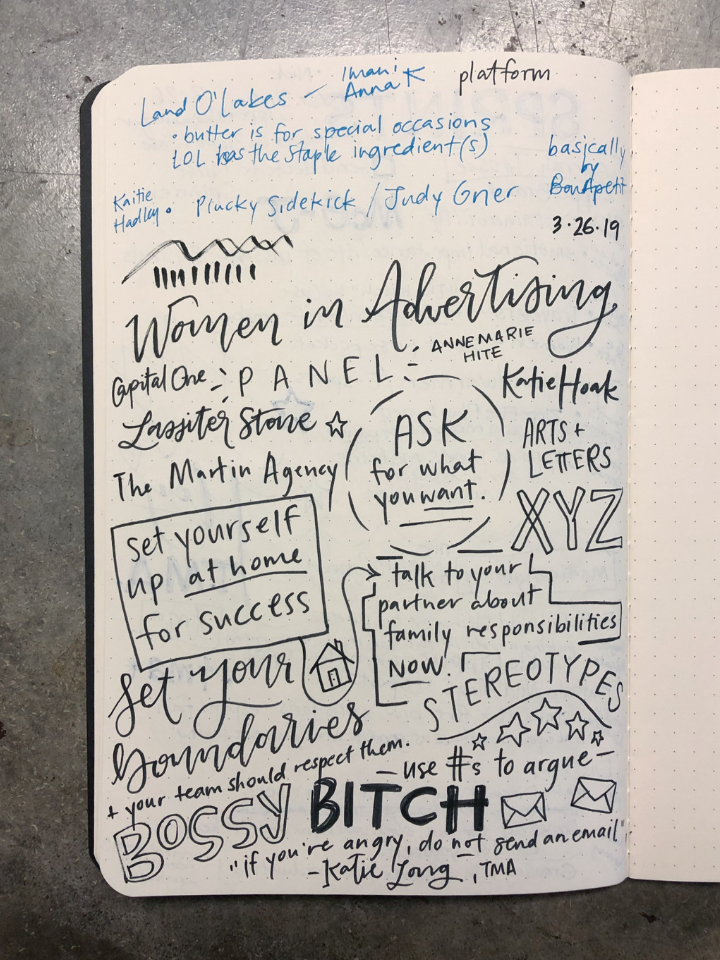 Land O'Lakes - Imani K
Anna
platform
• butter is for special occasions
LOL has the staple ingredient(s)
basically
by
BonApetit
Kaitie
Hadley • Plucky Sidekick / Judy Grier
3.26.19
Women in Advertising
Capital One - PANEL: ANNEMARIE
HITE
Lassiter Stone ☆
Katie Hoak
The Martin Agency
ARTS +
LETTERS
ASK
for what
you want.
XYZ
set yourself
up at home
for success
talk to your
partner about
family responsibilities
NOW!
set your
boundaries
+ your team should respect them.
STEREOTYPES
- use #s to argue -
BOSSY BITCH
"if you're angry, do not send an email"
- Katie Long, TMA